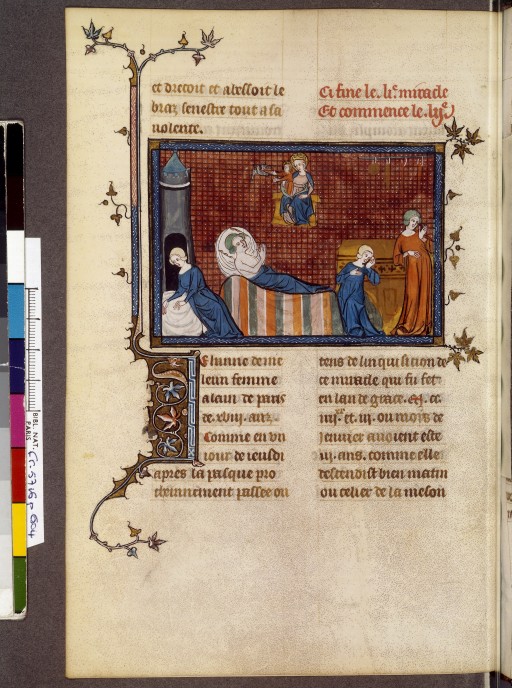 et drecoit et abessoit le
braz senestre tout a sa
volente.
Ci fine le. li.e miracle
Et commence le. lij.e
Ehunne de me
leun femme
alain de paris
de. xviij. anz.
Comme en un
iour de ieusdi
apres la pasque pro
cheinnement passee ou
tens de linquisition de
ce miracle qui fu fet
en lan de grace. cc.
iiij.xx et. ij. ou mois de
Jenvier avoient este
iij. ans. comme elle
descendist bien matin
ou celier de la meson
BIBL. NAT.
PARIS